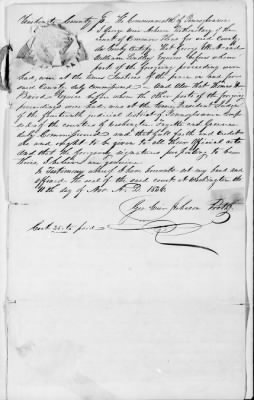 Washington County ss. The Commonwealth of Pennsylvania
I George Johnson Prothonotary of the
Court of Common Pleas for said County,
do hereby certify that George W. and
William Esquires before whom
part of the foregoing proceedings were
had, were at the time Justices of the peace in and for
said County duly commissioned And also that Thomas H
Baird Esquire before whom the other part of the foregoing
proceedings were had was at the time President Judge
of the fourteenth judicial district of Pennsylvania
of the counties of Washington Fayette and Greene
duly Commissioned and that full faith and credit
is and ought to be given to all their official acts
and that the foregoing signatures purporting to be
theirs I believe are genuine
In Testimony whereof I have hereunto set my hand and
affixed the seal of the said court at Washington the
10th day of Nov A.D. 1836.
Johnson Proth
Cost paid